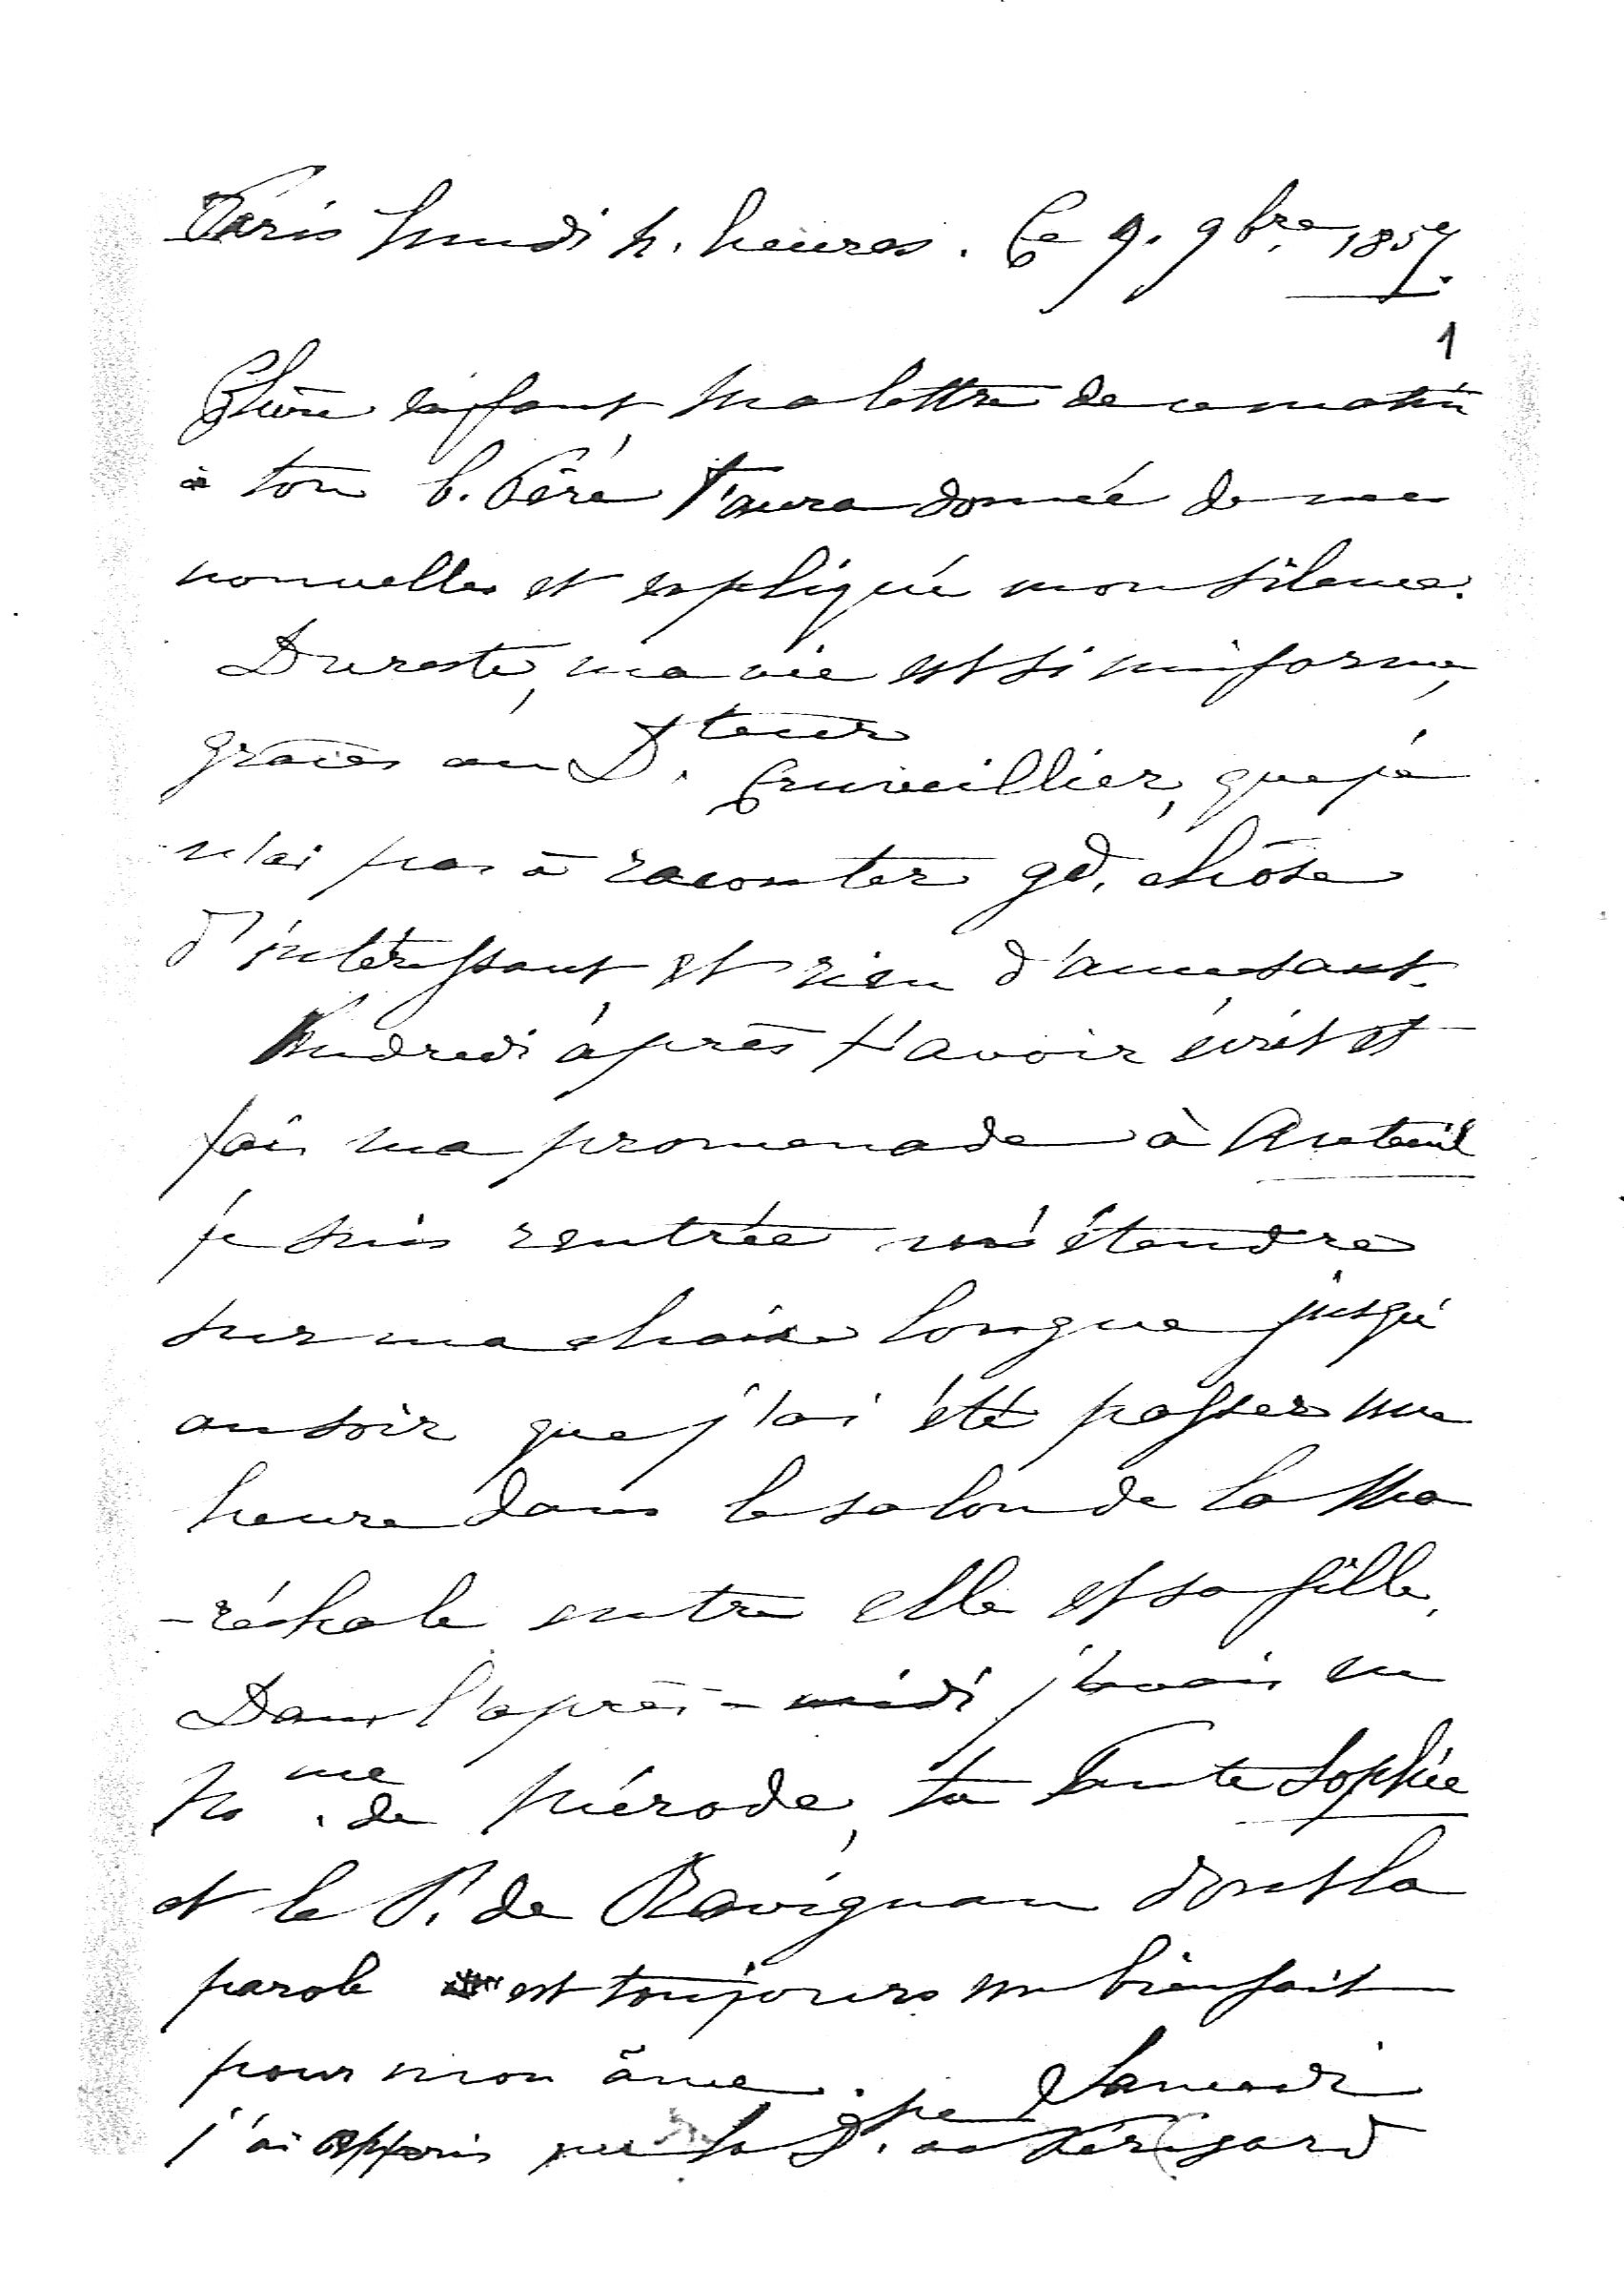 Paris lundi h. heures. Ce 9. 9bre 1857.
1
Chère enfant, ma lettre de ce matin
à ton b. Père t'aura donnée de mes
nouvelles et expliqué mon silence.
Du reste, ma vie est si uniforme,
graces au D.teur Cruveillier, que je
n'ai pas à raconter gd. chôse
d'intéressant et rien d'amusant.
Vendredi après t'avoir écrit et
fais ma promenade à Auteuil
je suis rentrée m'étendre
sur ma chaise longue jusqu'
au soir que j'ai été passer une
heure dans le salon de la Ma
-réchale entre elle et sa fille.
Dans l'après-midi j'avais vu
Mme. de Mérode, ta tante Sophie
et le P. de Ravignan dont la
parole est toujours un bienfait
pour mon âme. Samedi
j'ai appris que la D.sse de Périgord